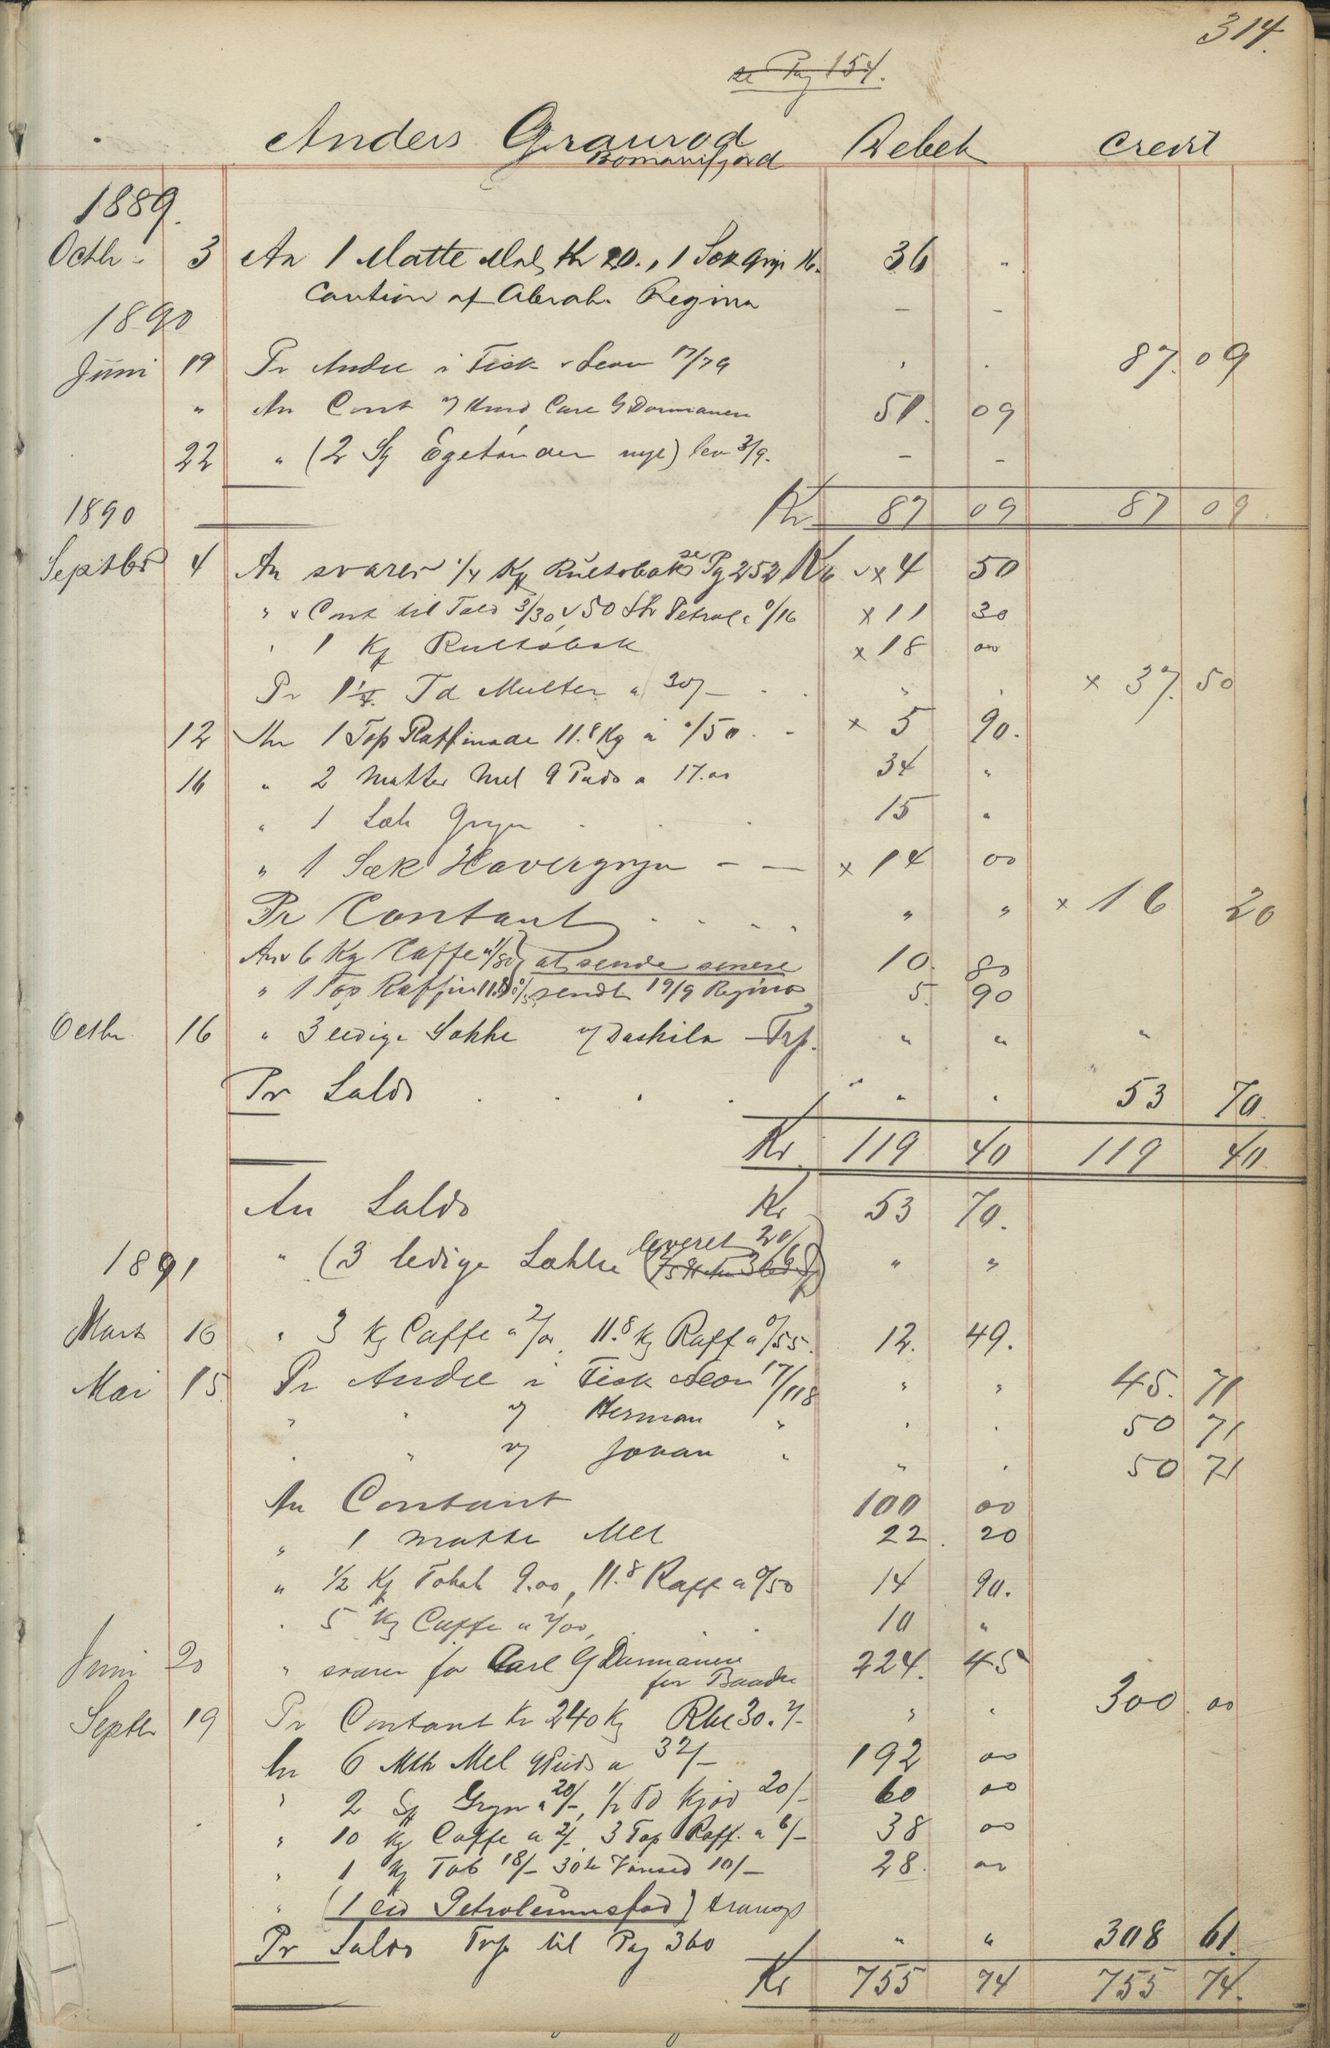 314.
se Pag 154.
Anders Graurod Debet Credit
Bomanifjord
1889.
Octbr 3 An 1 Matte Mel Kr 20., 1 Sæk Gryn 16. 36 "
Caution af Abrah. Regina - -
1890
Juni 19 Pr Andel i Fisk 17/79 " " 87. 09
" An Cont Carl G Dormanen 51. 09
22 " (2 Egetønder nye) lev 3/9. - -
Kr 87 09 87 09.
1890
Septbr 4 An svarer 1/4 Kg Rultobak se Pg 252 Kr x 4 50
" Cont til Told 3/30, 50 Petrol a 0/16 x 11 30
" 1 Kg Rultobak x 18 00
Pr 1 1/4 Td Multer a 30/- " " x 37. 50
12 An 1 Top Raffinade 11.8 Kg a 0/50 x 5 90.
16 " 2 Matter Mel 9 Puds a 17.00 34 "
" 1 Sæk Gryn 15 "
" 1 Sæk Havergryn - - x 14 00
Pr Contant " " x 16 20
An 6 Kg Caffe a 1/80 at sende senere 10. 80
" 1 Top Raffin 11.8 sendt 19/9 5. 90
Octbr 16 " 3 ledige Sække Trp. " " "
Pr Saldo " " 53 70.
Kr. 119 40 119 40.
An Saldo Kr 53 70.
leveret 20/6
1891 " (3 ledige Sække " "
Marts 16 " 3 Kg Caffe a 2/00, 11.8 Kg Raff a 0/55. 12. 49.
Mai 15 Pr Andel i Fisk 17/118 " " 45. 71
" " Herman " " " 50 71
" " Johan " " " 50 71
An Contant 100 00
" 1 Matte Mel 22. 20
" 1/2 Kg Tobak 9.00, 11.8 Raff a 0/50 14 90.
" 5 Kg Caffe a 2/00, 10 "
Juni 20 " svarer for Carl G Dormanen 224. 45
for Baaden
Septbr 19 Pr Contant Kr 240 Rbl 30. " " 300 00
An 6 Mtr Mel 9 Puds a 32/- 192 00
" 2 Sk Gryn a 20/-, 1/2 Td Kjød 20/- 60 00
" 10 Kg Caffe a 2/-, 3 Top Raff. a 6/- 38 00
" 1 Kg Tob 18/- 10/- 28. 00
" (1 Petroleumsfad)
Pr Saldo Trp til Pag 360 " " 308 61.
Kr 755 74 755 74.